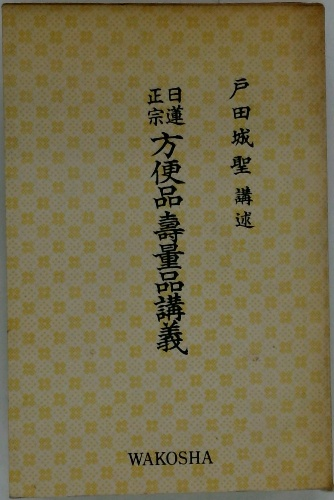 戸田城聖 講述
日蓮
正宗
方便品壽量品講義
WAKOSHA